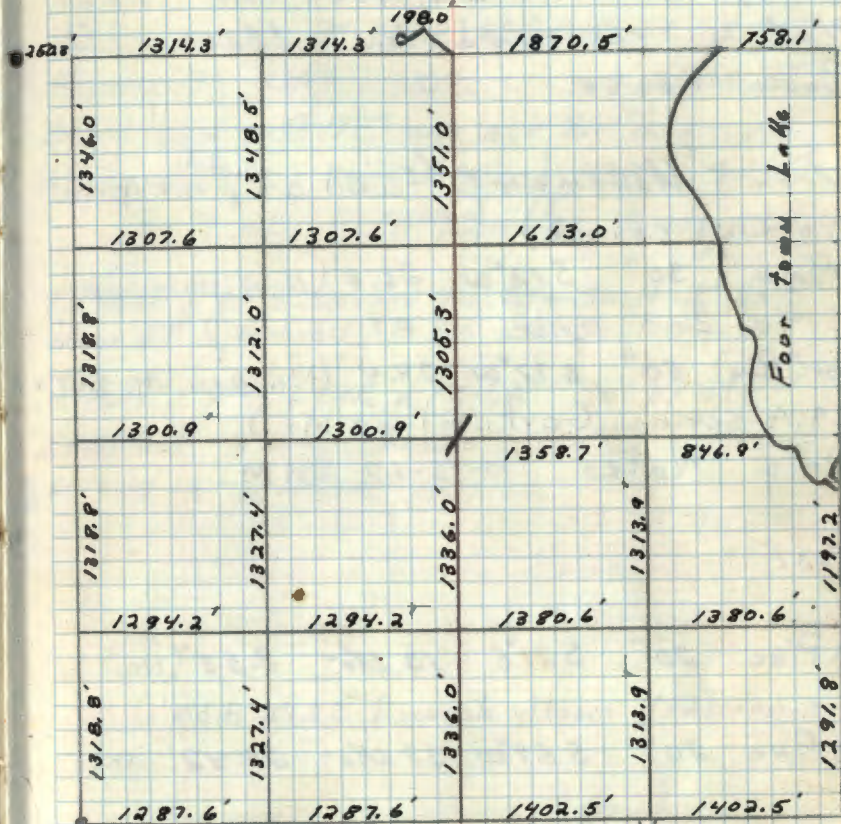 198.0
1314.3' 1314.3' 1870.5' 758.1'
1346.0' 1348.5' 1351.0'
Four town Lake
1307.6 1307.6' 1613.0'
1318.8' 1312.0' 1305.3'
1300.9 1300.9' 1358.7' 846.9'
1318.8' 1327.4' 1336.0' 1313.9 1197.2'
1294.2' 1294.2 1380.6' 1380.6'
1318.8' 1327.4' 1336.0' 1313.9 1291.8'
1287.6' 1287.6' 1402.5' 1402.5'